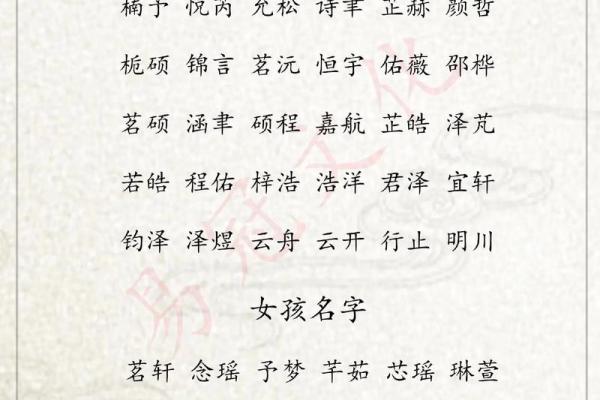 楠予 悦芮 允松 诗聿 芷赫 颜哲
栀硕 锦言 茗沅 恒宇 佑薇 邵桦
茗硕 涵聿 硕程 嘉航 芷皓 泽芃
若皓 程佑 梓浩 浩洋 君泽 宜轩
钧泽 泽煜 云舟 云开 行止 明川
女孩名字
茗轩 念瑶 予梦 芊茹 芯瑶 琳萱
易冠文化